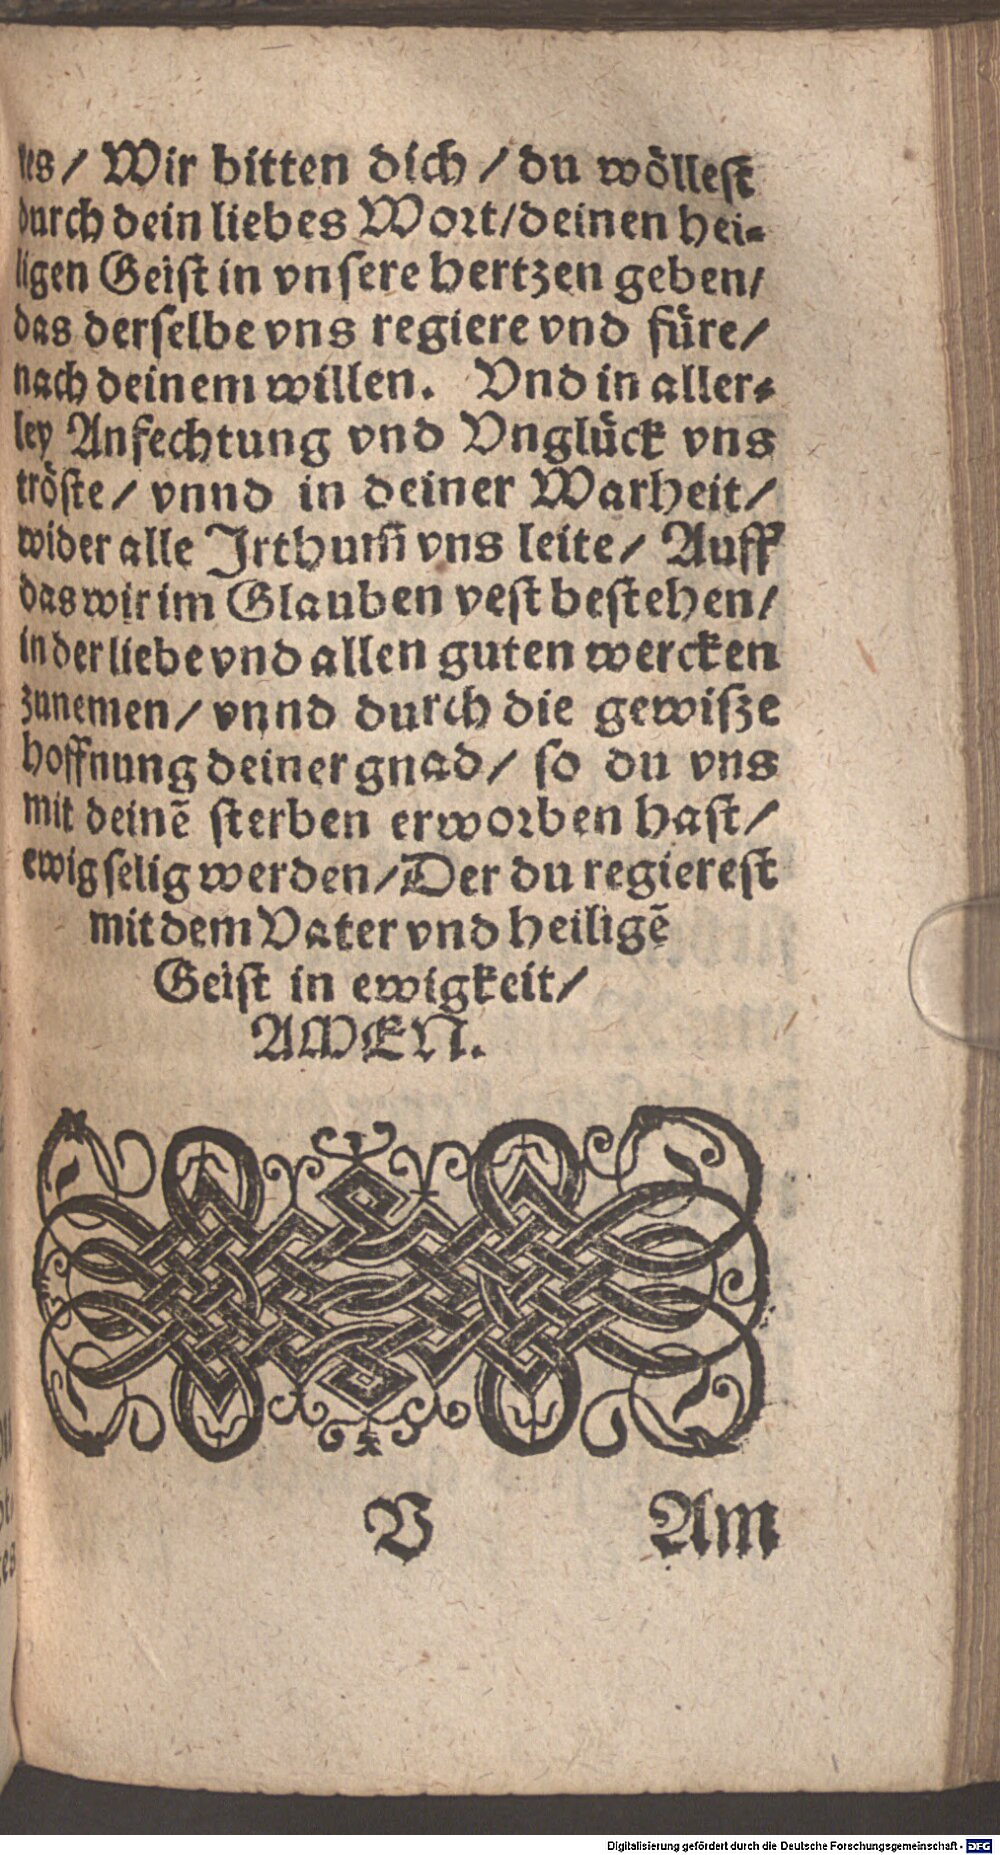 les/ Wir bitten dich/ du wöllest
durch dein liebes Wort/deinen hei⸗
ligen Geist in vnsere hertzen geben/
das derselbe vns regiere vnd füre/
nach deinem willen. Vnd in aller⸗
ley Anfechtung vnd Vnglück vns
tröste/ vnnd in deiner Warheit/
wider alle Irthum̃ vns leite/ Auff
das wir im Glauben vest bestehen/
in der liebe vnd allen guten wercken
zunemen/ vnnd durch die gewisze
hoffnung deiner gnad/ so du vns
mit deinẽ sterben erworben hast/
ewig selig werden/ Der du regierest
mit dem Vater vnd heiligẽ
Geist in ewigkeit/
AMEN.
V Am
Digitalisierung gefördert durch die Deutsche Forschungsgemeinschaft - DFG